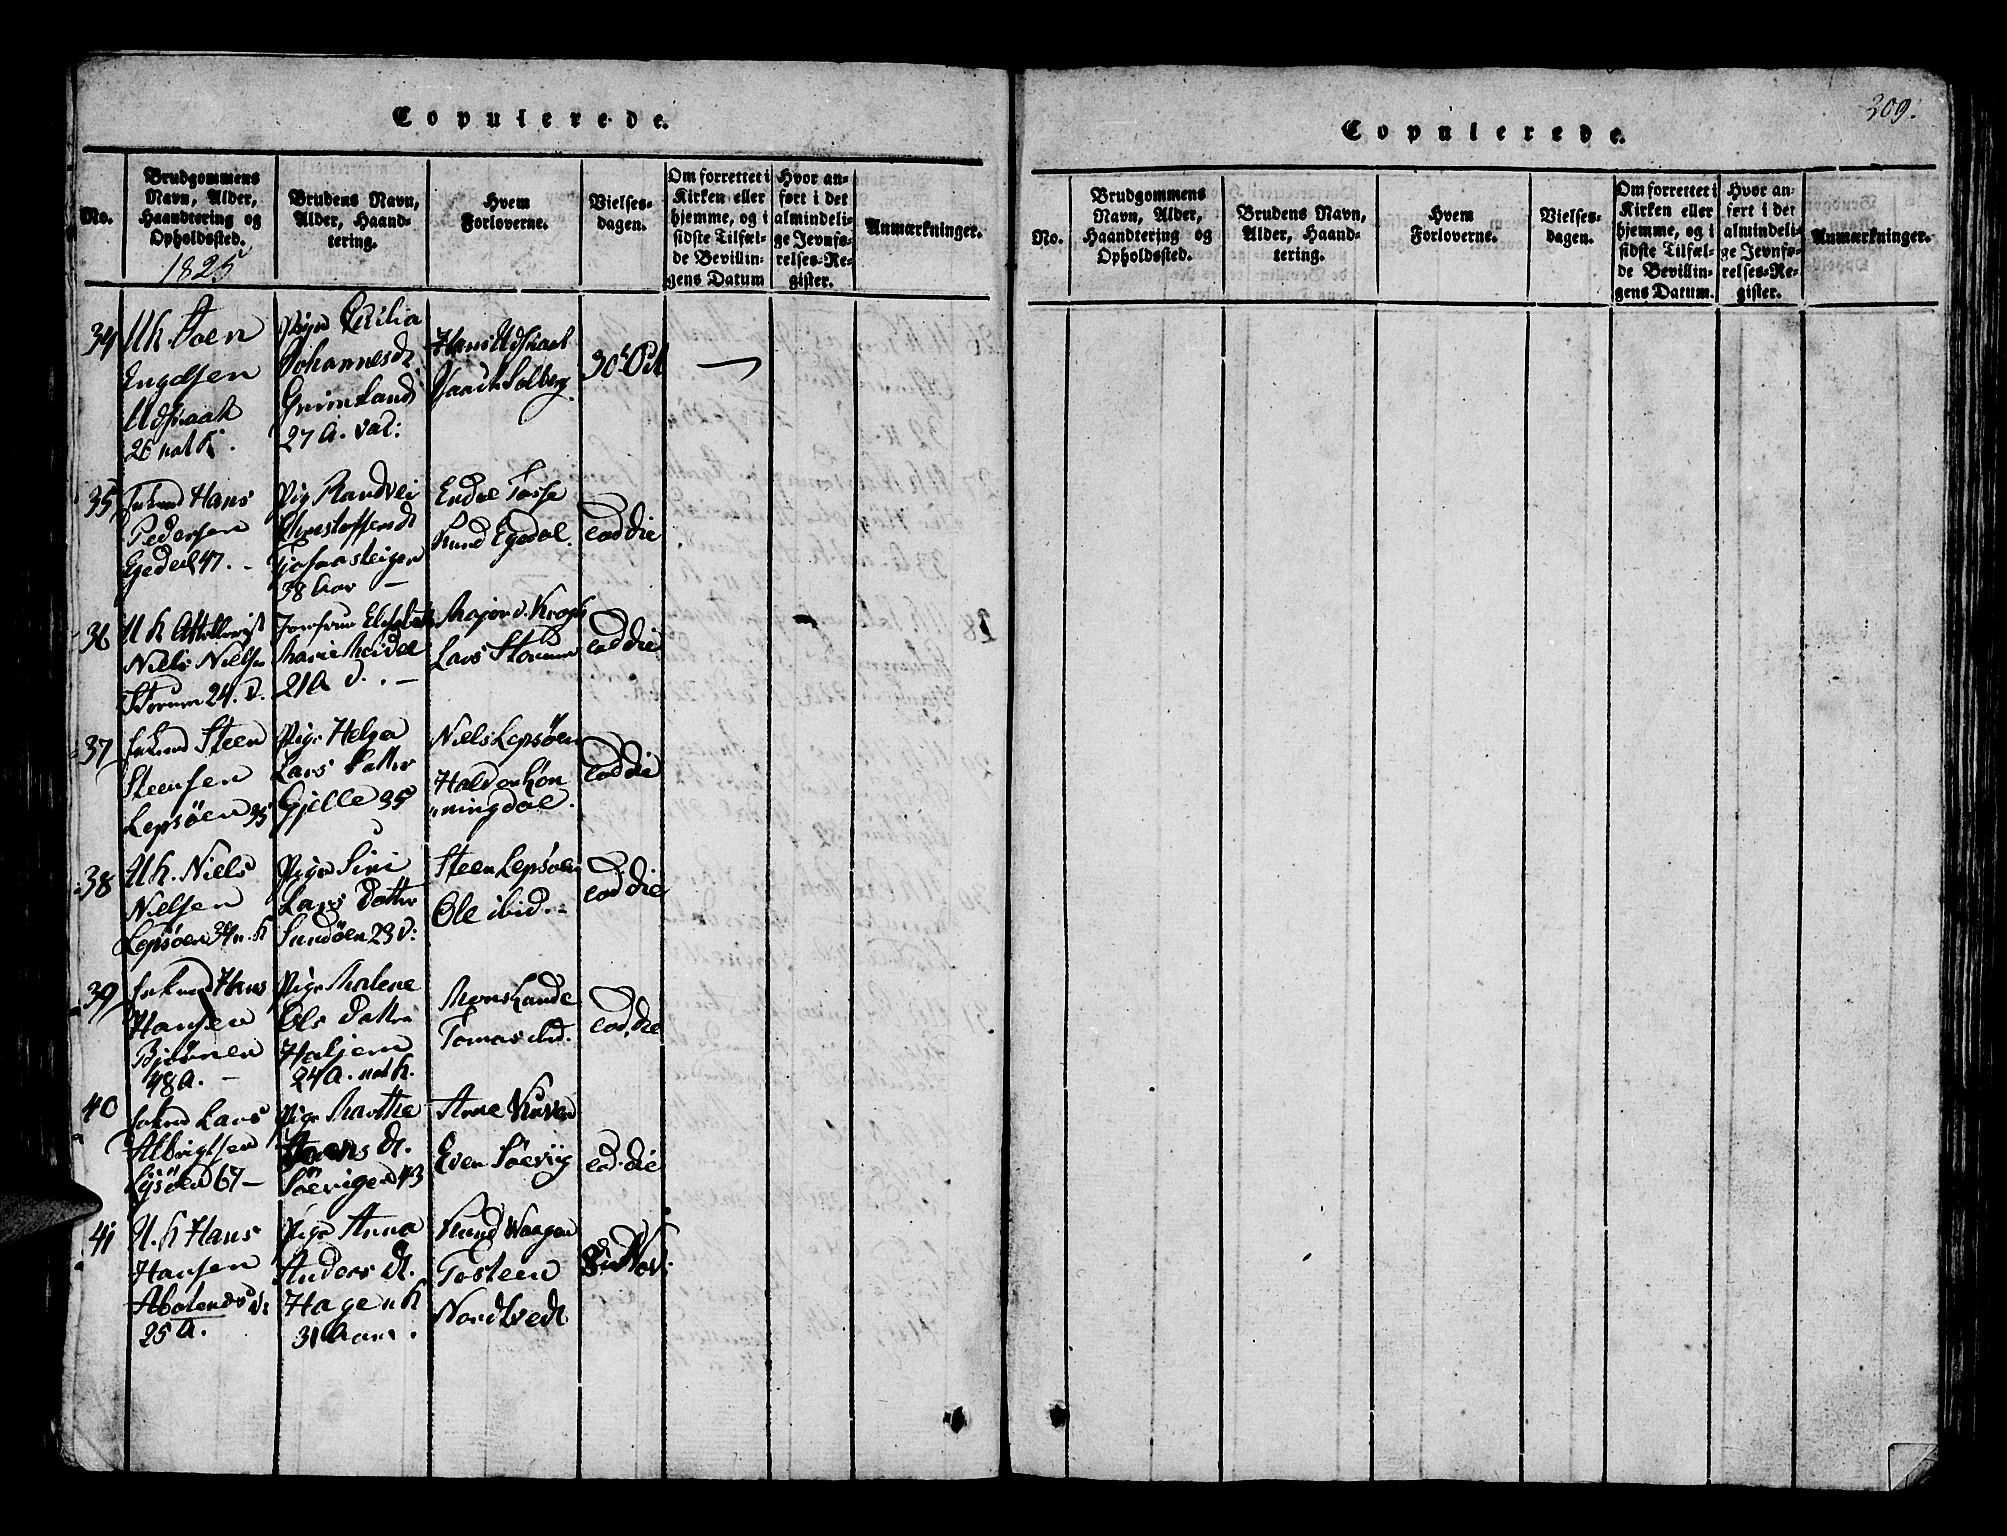 Copulerede.
No.
Brudgommens
Navn, Alder,
Haandtering og
Opholdssted.
1825
Brudens Navn,
Alder, Haand-
tering.
Hvem
Forloverne.
Vielses-
dagen.
Om forrettet i
Kirken eller
hjemme, og i
sidste Tilfæl-
de Bevillin-
gens Datum
Hvor an-
ført i det
almindeli-
ge Jevnfø-
relses-Re-
gister.
Anmærkninger.
34
Uk.
Engelsen
Udskaah
26 nat k.
Pige Cecilia
Johannes dt
Grimeland
27 A. vac:
Hans Udskaah
Solberg
30te Oct
35
Enkmd Hans
Pedersen
Egedal 47. -
Pige Randvei
Christoffers dt
38 Aar -
Endre Tosse
Knud Egedal.
eod die
36
U K
Niels Nielsen
Storum 24. v.
Jomfrue Elisabeth
Marie Meidel
21 A v. . -
Major v. Krogh
Lars Storum
eod die
37
Enkmd Steen
Steensen
Lepsöen 35
Pige Helga
Lars Datter
Gjelle 35
Niels Lepsöen
Haldor Lön-
ningdal.
eod die
38
Uk. Niels
Nielsen
Lepsöen 34 n. k
Pige Siri
Lars Datter
Sundöen 23 v:
Steen Lepsöen
Ole ibid. -
eod die
39
Enkmd Hans
Hansen
Björnen
48 A. -
Pige Malene
Ols Datter
Haljem
24 A. nat k.
Mons Lande
Tomas ibd.
eod. die
40
Enkmd Lars
Albrigtsen
Lysöen 67 -
Pige Marthe
dt.
Söevigen 43
Arne
Even Söevig
eod. die
41
U. k Hans
Hansen
25 A.
Pige Anna
Anders dt.
Hage n k
31 Aar .
Knud Waagen
Tosteen
Nordtvedt
Nov:
309.
Copulerede.
No.
Brudgommens
Navn, Alder,
Haandtering og
Opholdssted.
Brudens Navn,
Alder, Haand-
tering.
Hvem
Forloverne.
Vielses-
dagen.
Om forrettet i
Kirken eller
hjemme, og i
sidste Tilfæl-
de Bevillin-
gens Datum.
Hvor an-
ført i det
almindeli-
ge Jevnfø-
relses-Re-
gister.
Anmærkninger.